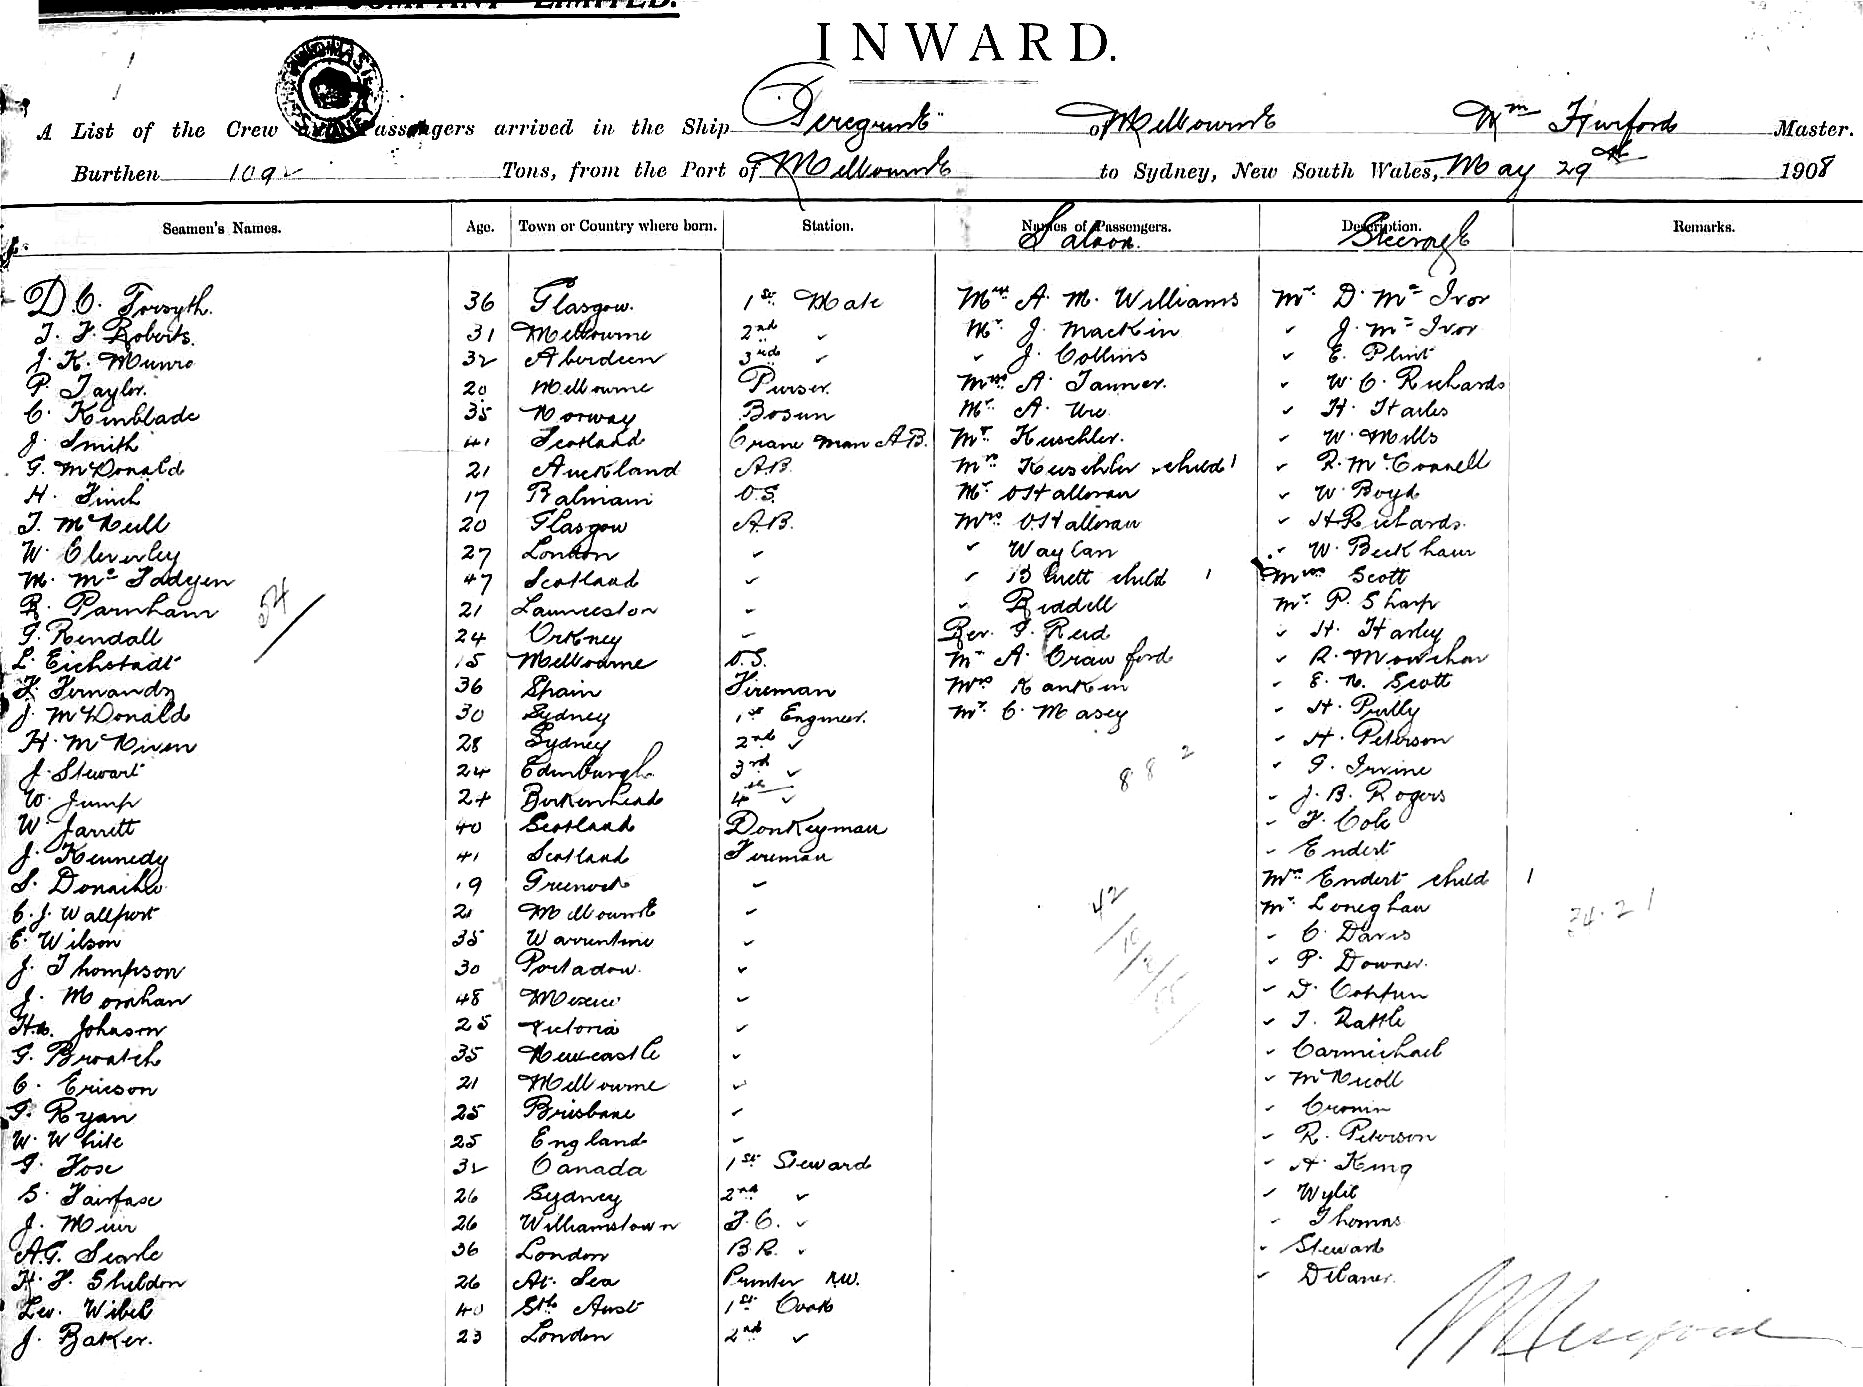 COMPANY LIMITED.
INWARD.
A List of the Crew and Passengers arrived in the Ship "Peregrine" of Melbourne Wm Hurford Master.
Burthen 1092 Tons, from the Port of Melbourne to Sydney, New South Wales, May 29th 1908
Seamen's Names. Age. Town or Country where born. Station. Names of Passengers. Description. Remarks.
Saloon. Steerage
D. C. Forsyth. 36 Glasgow. 1st Mate Mrs A. M. Williams Mr. D. Mc Ivor
T. F. Roberts. 31 Melbourne 2nd ✓ Mr. J. Mackin ✓ J. Mc Ivor
J. K. Munro 32 Aberdeen 3rd ✓ ✓ J. Collins ✓ E. Plint
P. Taylor. 20 Melbourne Purser. Miss A. Tanner. ✓ W. C. Richards
C. Kinblade 35 Norway Bosun Mr. A. Ure ✓ H. Harles
J. Smith 41 Scotland Crane man A.B. Mr. Kuschler. ✓ W. Mills
G. McDonald 21 Auckland A.B. Mrs Kuschler & child 1 ✓ R. McConnell
H. Finch 17 Balmain O.S. Mr. O'Halloran ✓ W. Boyd
T. McNeill 20 Glasgow A.B. Mrs O'Halloran ✓ H Richards.
W. Cleverley 27 London ✓ ✓ Waylan ✓ W. Beckham
M. Mc Fadyen 47 Scotland ✓ ✓ Brett child 1 Miss Scott
R. Parnham 21 Launceston ✓ ✓ Riddell Mr. P. Sharp
G. Rendall 24 Orkney ✓ Rev. G. Reid ✓ H. Harley
L. Eichstadt 15 Melbourne O.S. Mr A. Crawford ✓ R. Mowchan
F. Fernandz 36 Spain Fireman Mrs Rankin ✓ E. N. Scott
J. McDonald 30 Sydney 1st Engineer. Mr. C. Masey ✓ H. Pully
H. McNiven 28 Sydney 2nd ✓ ✓ H. Peterson
J. Stewart 24 Edinburgh 3rd ✓ ✓ G. Irvine
W. Jump 24 Birkenhead 4th ✓ ✓ J. B. Rogers
W Jarrett 40 Scotland Donkeyman ✓ F. Cole
J. Kennedy 41 Scotland Fireman ✓ Endert
S. Donachie 19 Greenock ✓ Mrs Endert child 1
C. J. Wallport 21 Melbourne ✓ Mr. Loneghan
E. Wilson 35 Warrentine ✓ ✓ C. Davis
J. Thompson 30 Portadow. ✓ ✓ P. Downer.
J. Morahan 48 Mexico ✓ ✓ D.
Johnson 25 Victoria ✓ ✓ T. Rattle
G. Broatch 35 Newcastle ✓ ✓ Carmichael
C. Ericson 21 Melbourne ✓ ✓ McNicoll
G. Ryan 25 Brisbane ✓ ✓ Cronin
W. White 25 England ✓ ✓ R. Peterson
G. Fose 32 Canada 1st Steward ✓ A. King
S. Fairfase 26 Sydney 2nd ✓ ✓ Wylie
J. Muir 26 Williamstown F.C. ✓ ✓ Thomas
A.G. Searle 36 London B.R. ✓ ✓ Steward
H. F. Sheldon 26 At Sea Printer N.W. ✓ Delaner.
Leo. Wibel 40 Sth Aust 1st Cook
J. Baker. 23 London 2nd ✓
54
88 2
42
24.21